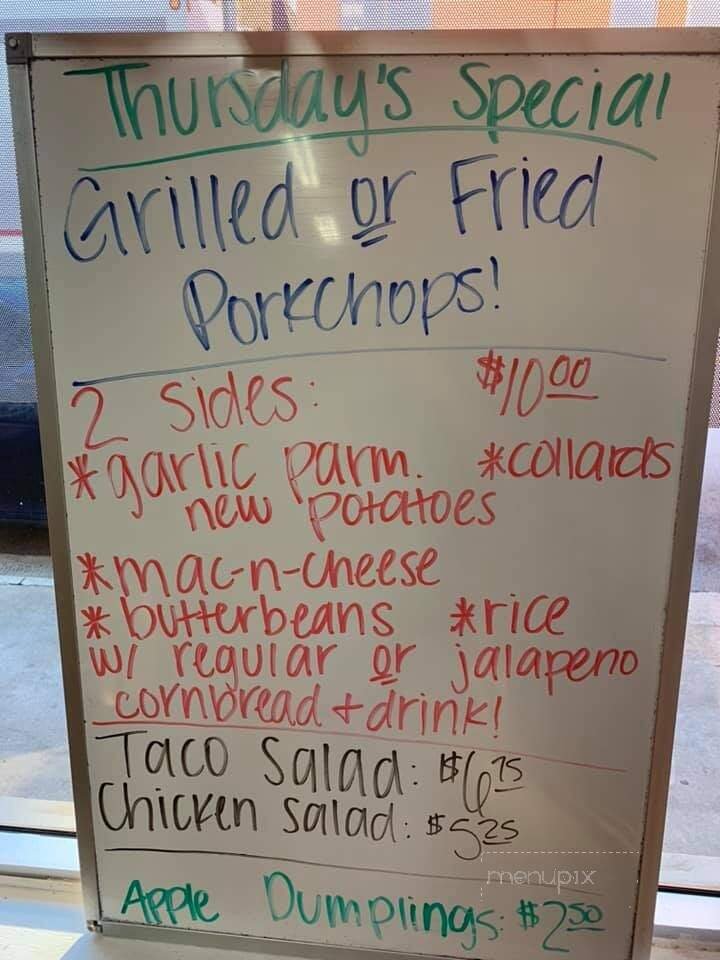 Thursday's Special
Grilled or Fried
Porkchops!
2 Sides: $10.00
*garlic parm. *collards
new potatoes
*mac-n-cheese
*butterbeans *rice
w/ regular or jalapeno
cornbread + drink!
Taco Salad: $6.75
Chicken Salad: $5.25
menupix
Apple Dumplings: $2.50